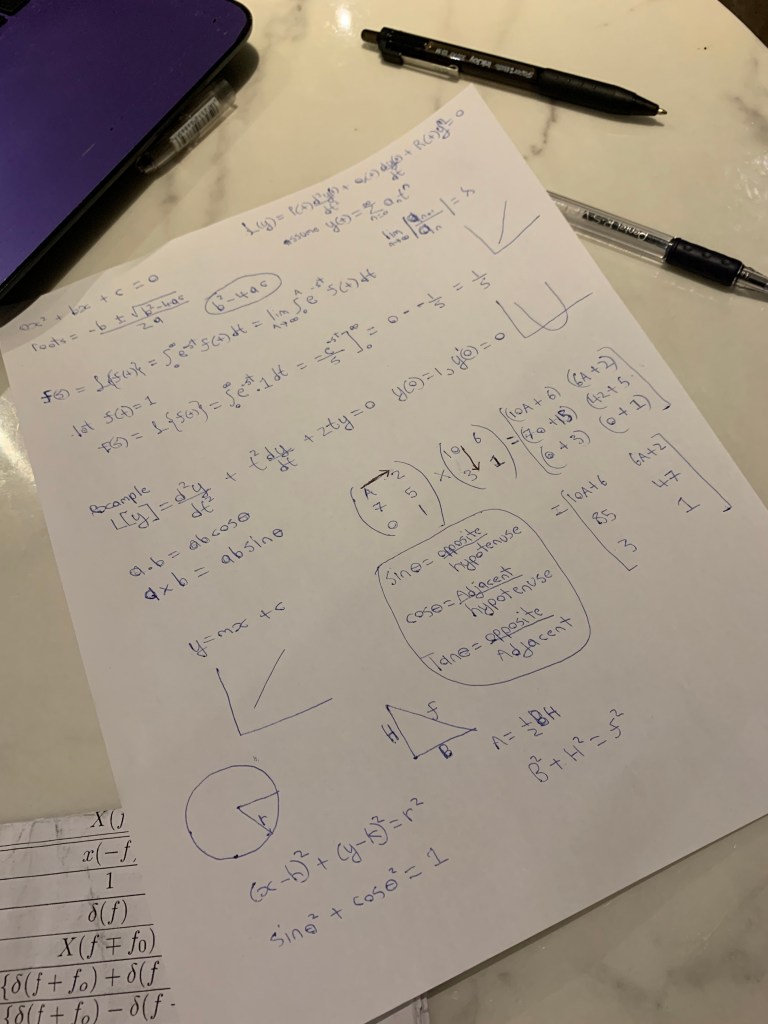 L(y) = P(t) d²y(t)/dt² + Q(t) dy(t)/dt + R(t)y = 0
assume y(t) = ∞ Σ n=0 aₙtⁿ
lim n→∞ |aₙ₊₁/aₙ| =
ax² + bx + c = 0
roots = -b ± √b²-4ac / 2a
b²-4ac
f(s) = L{f(t)} = ∫₀^∞ e^-st f(t) dt = lim A→∞ ∫₀^A e^-st f(t) dt
let f(t) = 1
F(s) = L{f(t)} = ∫₀^∞ e^-st . 1 dt = -e^-st/s ]₀^∞ = 0 - - 1/s = 1/s
Example
L[y] = d²y/dt² + t² dy/dt + 2ty = 0 y(0)=1, y'(0)=0
a.b = ab cosθ
a×b = ab sinθ
(A 2
7 5
0 1)
×
(10 6
3 1)
=
[(10A+6) (6A+2)
(70+15) (42+5)
(0+3) (0+1)]
= [10A+6 6A+2
85 47
3 1]
sinθ = opposite/hypotenuse
cosθ = Adjacent/hypotenuse
Tanθ = opposite/Adjacent
y = mx + c
H
f
B
A = ½BH
B² + H² = f²
r
(x-h)² + (y-k)² = r²
sinθ² + cosθ² = 1
x(-f
1
δ(f)
X(f ∓ f₀)
{δ(f + f₀) + δ(f
{δ(f + f₀) − δ(f -